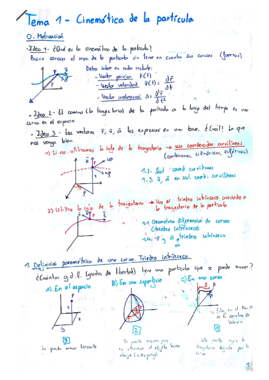 Tema 1 - Cinemática de la partícula
0. Motivación
- Idea 1. ¿Qué es la cinemática de la partícula?
Busca conocer el mov. de la partícula sin tener en cuenta sus causas (fuerzas)
Debes saber en cada instante:
- Vector posición r(t)
- Vector velocidad v(t) = dr/dt
- Vector aceleración a = d²r/dt²
- Idea 2. El camino (la trayectoria) de la partícula a lo largo del tiempo es una
curva en el espacio
- Idea 3 - Los vectores r, v, a los expresas en una base. ¿Cuál? La que
más venga bien
1) Si no utilizamos la info de la trayectoria → uso coordenadas curvilíneas
(cartesianas, cilíndricas, esféricas)
1.2. Qué coord. curvilíneas
1.3 v, a en sist. coord. curvilíneas
2) Utilizo la info de la trayectoria → Uso el Triedro intrínseco asociado a
la trayectoria de la partícula
1.1 Geometría diferencial de curvas
(triedro intrínseco)
1.4. v y a triedro intrínseco
1. Definición paramétrica de una curva. Triedro intrínseco.
¿Cuántos g.d.l. (grados de libertad) tiene una partícula que se puede mover?
a) En el espacio
b) En una superficie
c) En una curva
3
2
1
Se puede mover libremente
Se puede mover
1